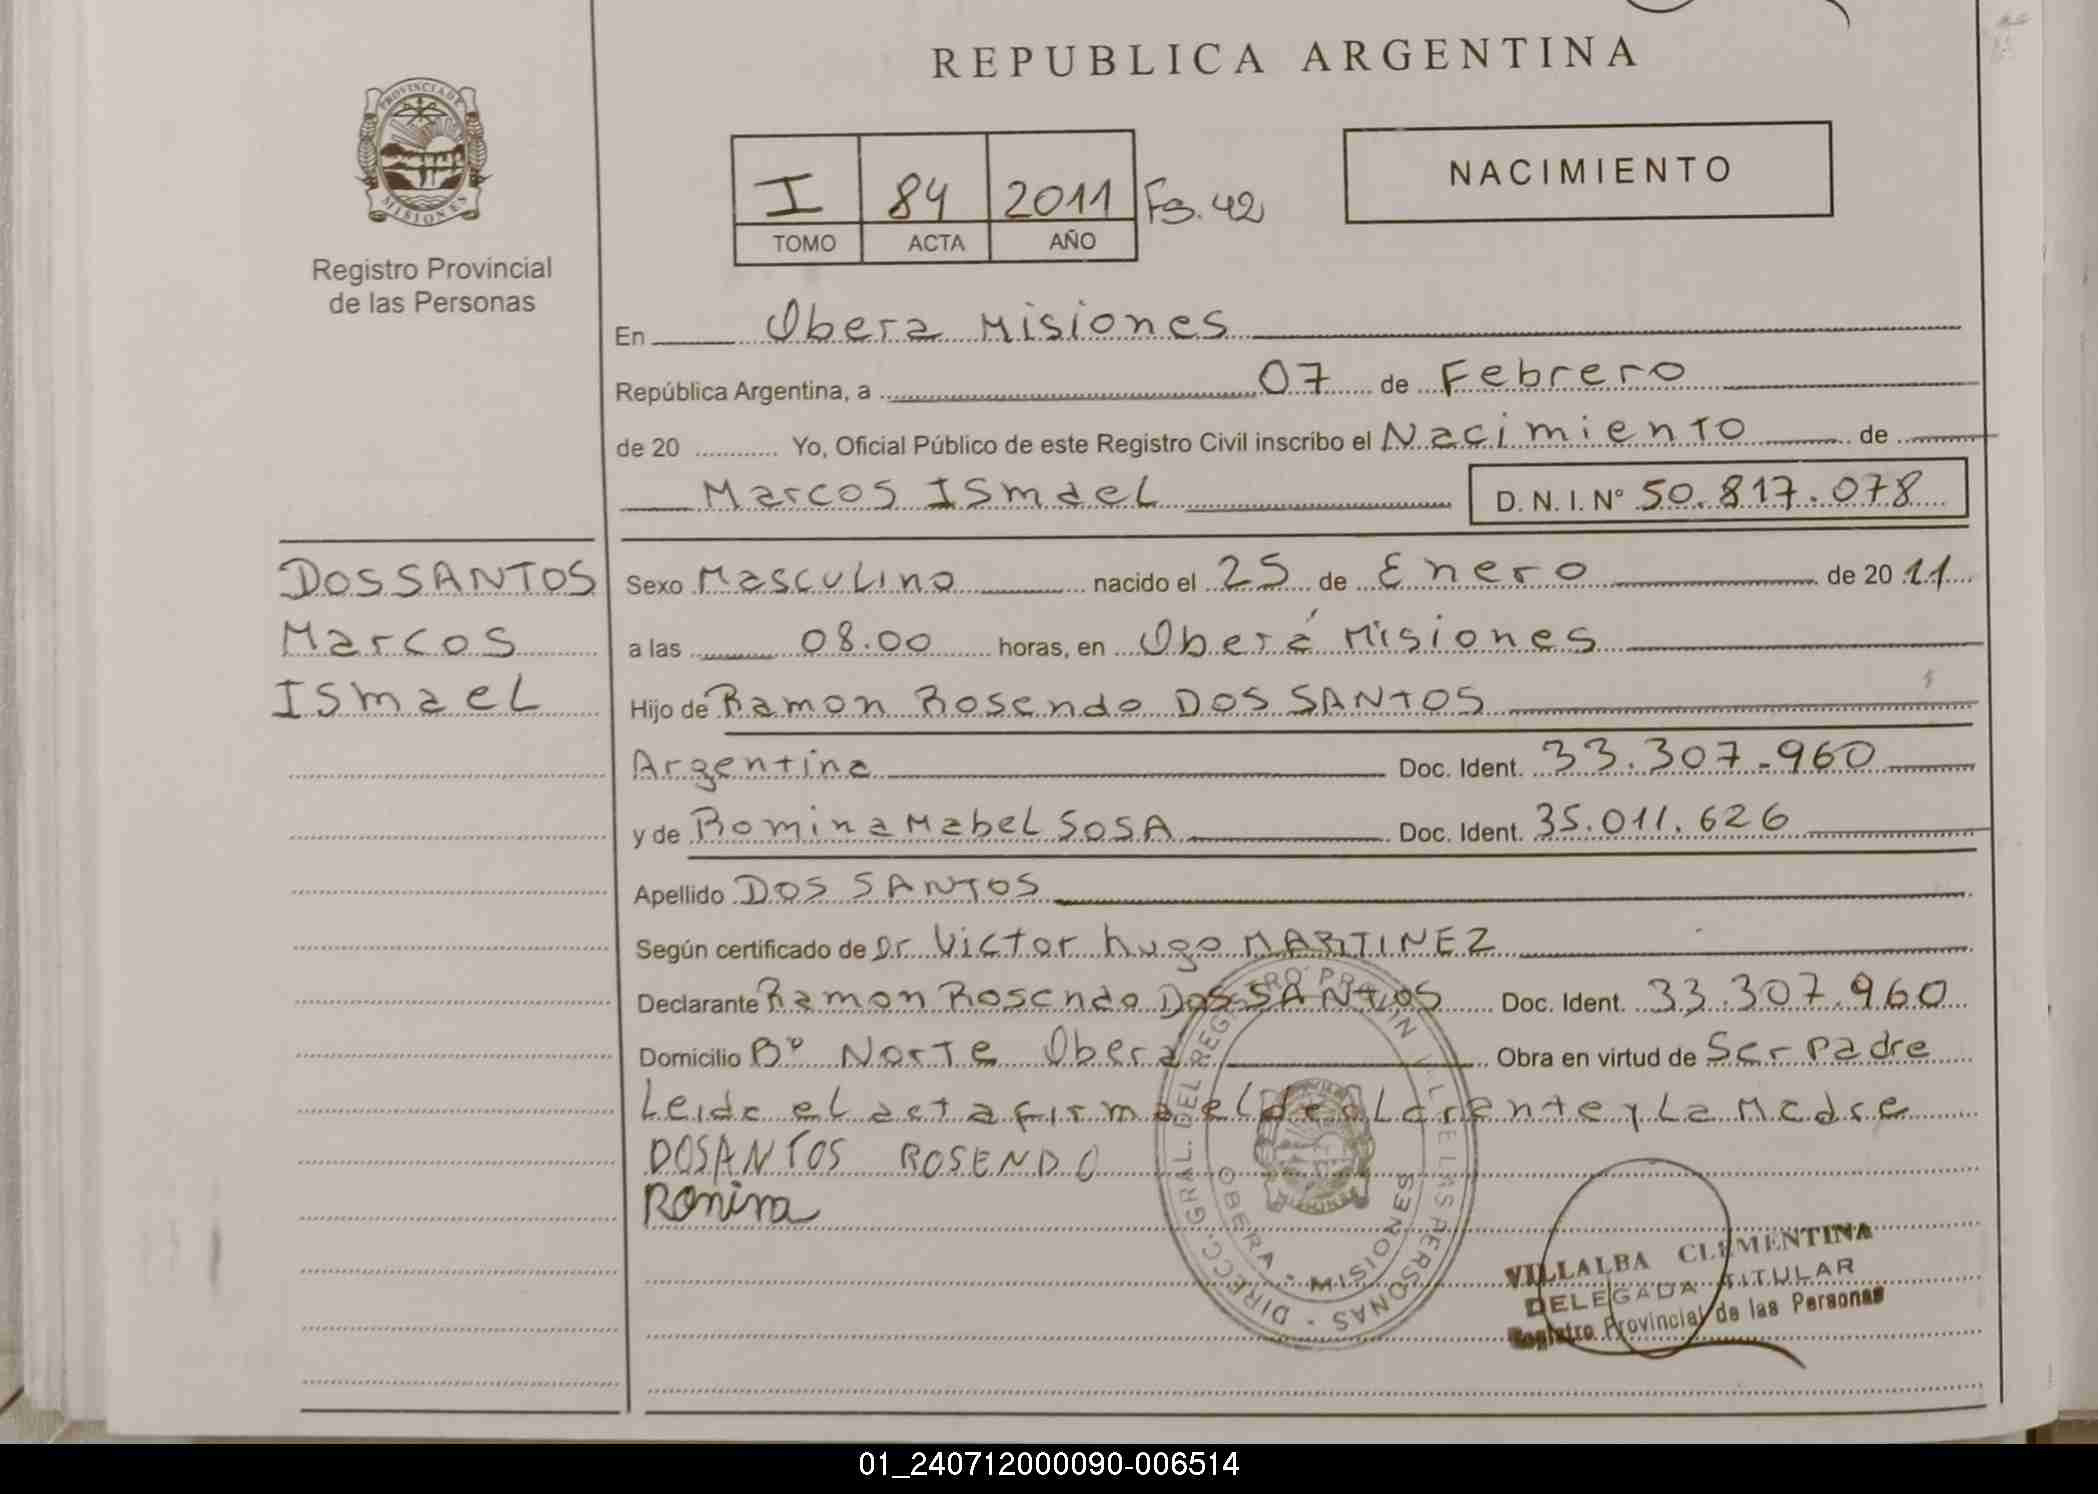 REPUBLICA ARGENTINA
PROVINCIA DE MISIONES
Registro Provincial
de las Personas
I 84 2011 Fo. 42
TOMO ACTA AÑO
NACIMIENTO
En Obera Misiones
República Argentina, a 07 de Febrero
de 20 Yo, Oficial Público de este Registro Civil inscribo el Nacimiento de
Marcos Ismael D. N. I. N° 50.817.078
DOS SANTOS
Marcos
Ismael
Sexo Masculino nacido el 25 de Enero de 20 11
a las 08.00 horas, en Oberá Misiones
Hijo de Ramon Rosendo DOS SANTOS
Argentina Doc. Ident. 33.307.960
y de Romina Mabel SOSA Doc. Ident. 35.011.626
Apellido DOS SANTOS
Según certificado de Dr. Victor hugo MARTINEZ
Declarante Ramon Rosendo DOS SANTOS Doc. Ident. 33.307.960
Domicilio B° Norte Obera Obra en virtud de Ser padre
Leida el acta firma el declarante y La Madre
DOSANTOS ROSENDO
Romina
DIRECC. GRAL. DEL REGISTRO PROVINCIAL DE LAS PERSONAS
OBERA - MISIONES
VILLALBA CLEMENTINA
DELEGADA TITULAR
Registro Provincial de las Personas
01_240712000090-006514